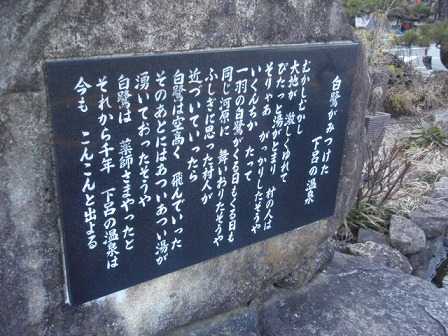 白鷺がみつけた
下呂の温泉
むかしむかし
大地が 激しくゆれて
ぴたっと湯がとまり 村の人は
そりゃあ がっかりしたそうや
いくんちか たって
一羽の白鷺がくる日もくる日も
同じ河原に 舞いおりたそうや
ふしぎに思った村人が
近づいていったら
白鷺は空高く 飛んでいった
そのあとにはあついあつい湯が
湧いておったそうや
白鷺は 薬師さまやったと
それから千年 下呂の温泉は
今も こんこんと出よる